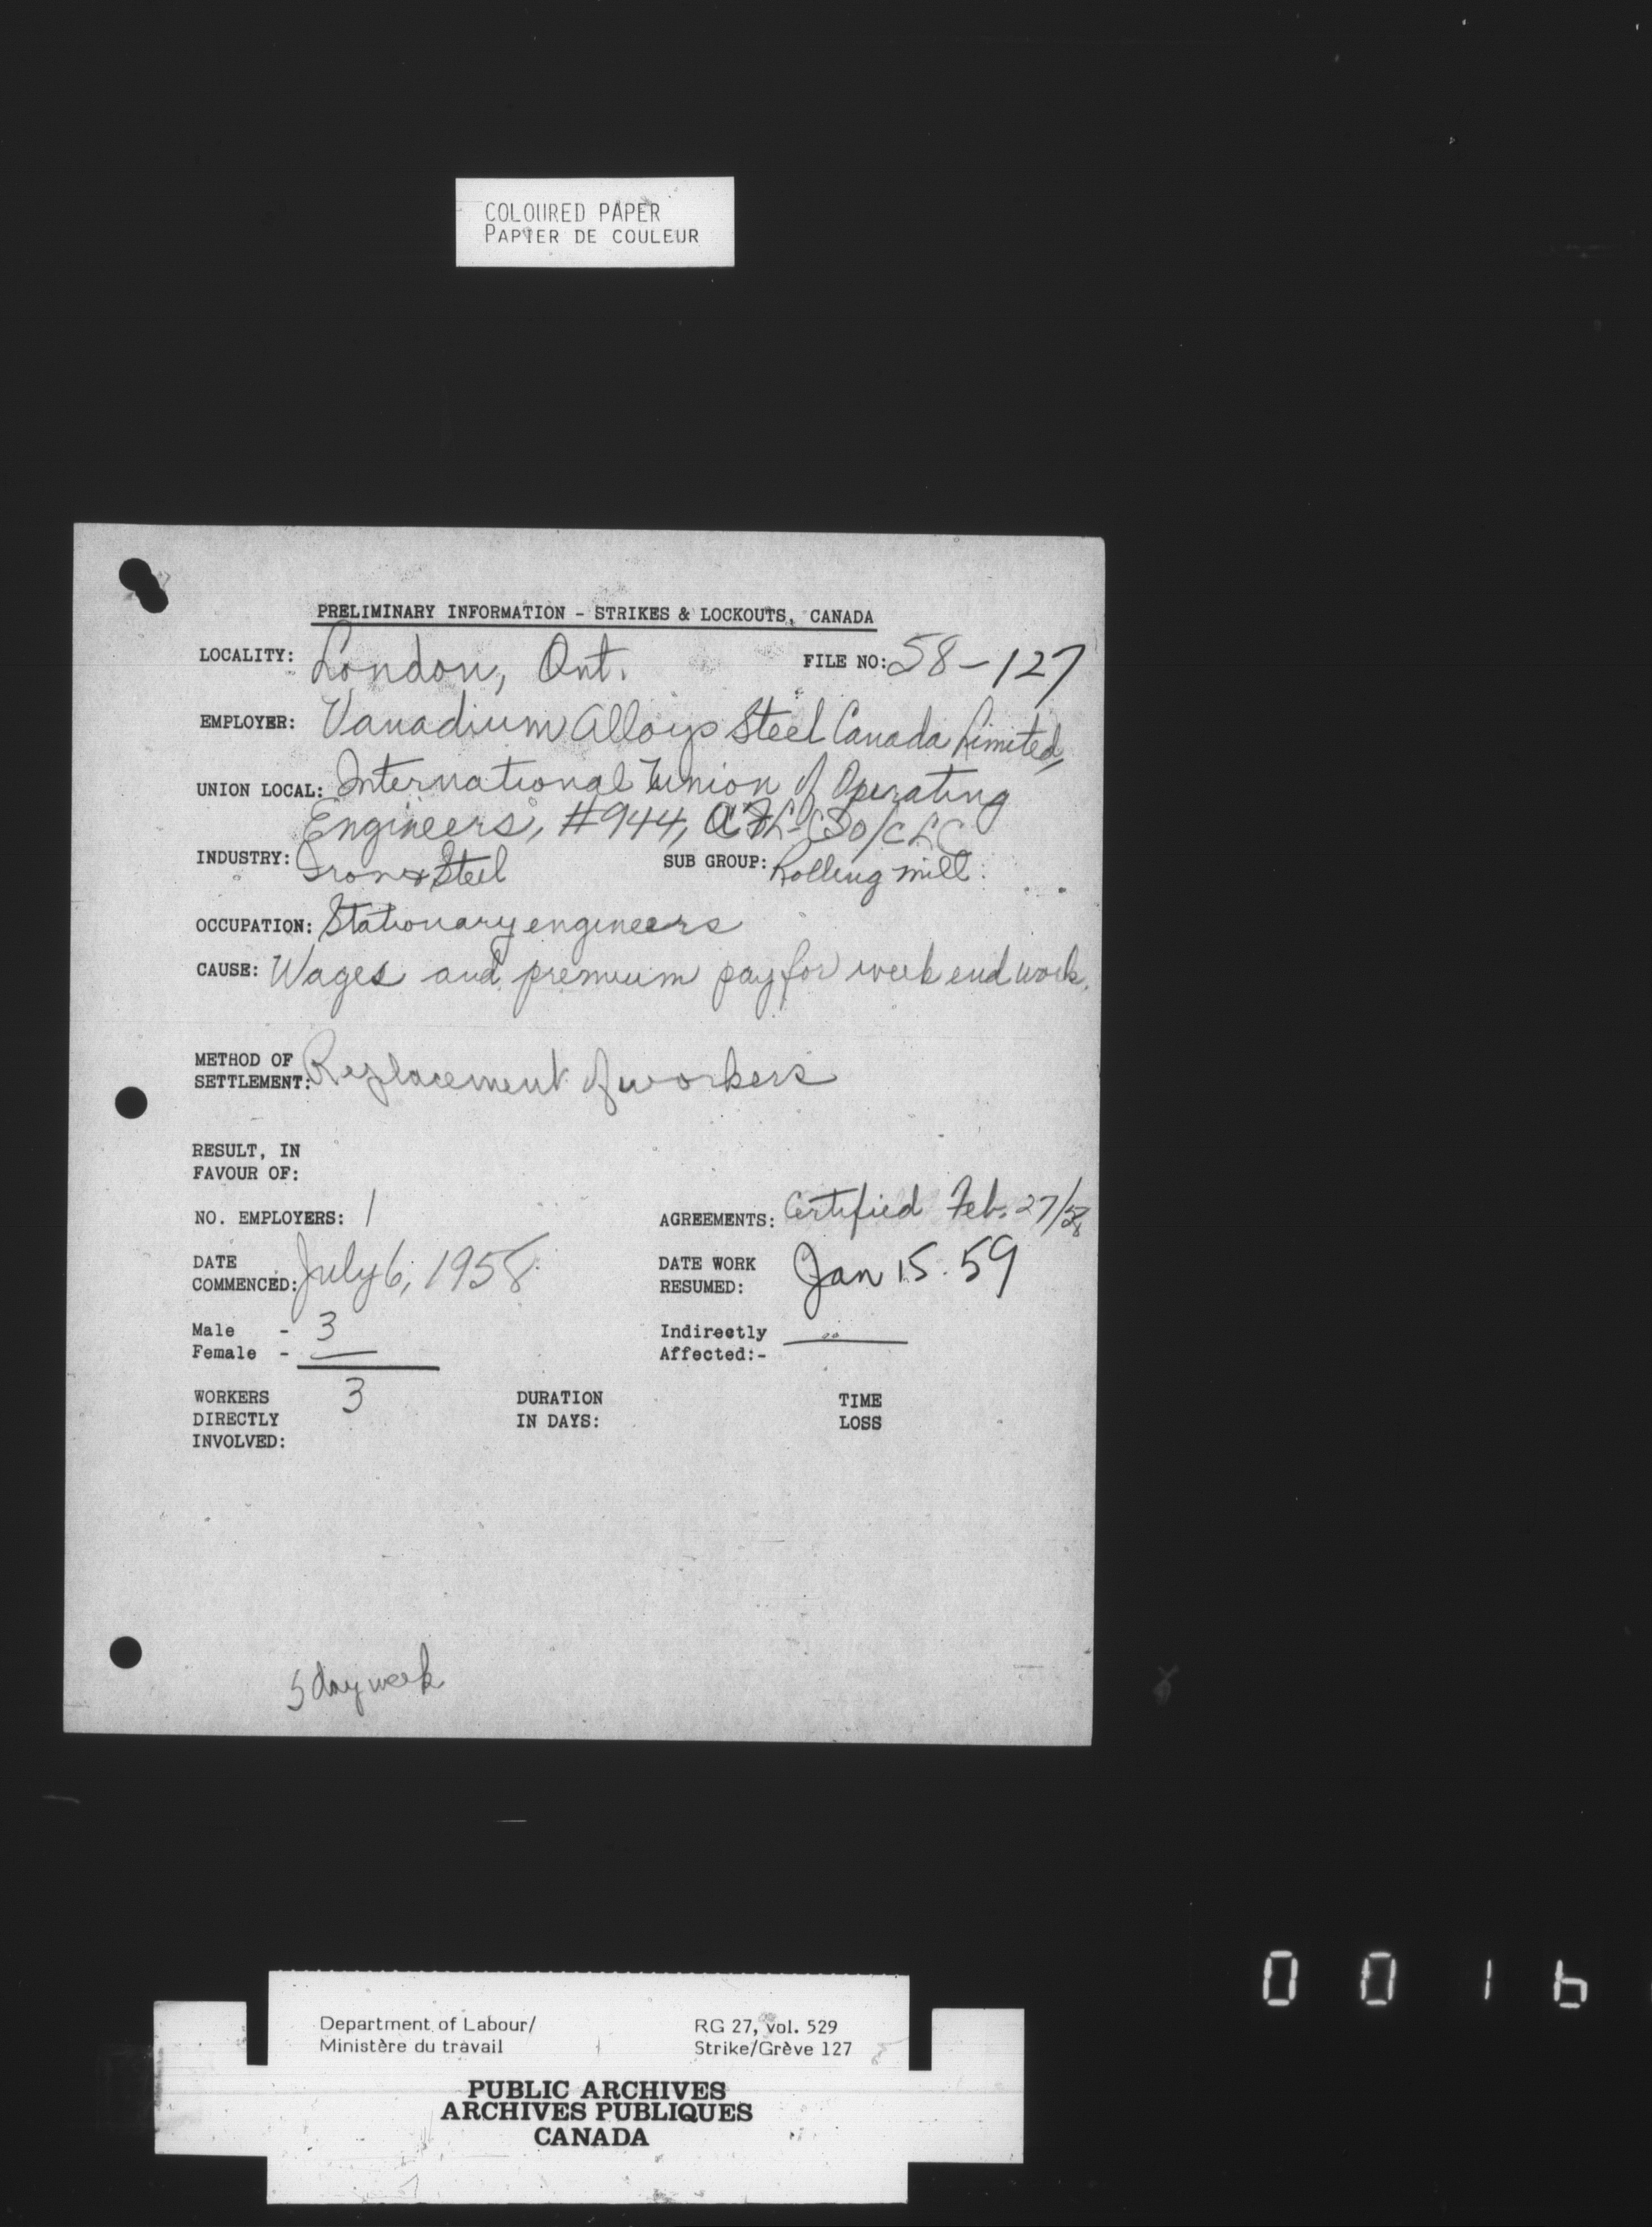 COLOURED PAPER
PAPIER DE COULEUR
PRELIMINARY INFORMATION - STRIKES & LOCKOUTS, CANADA
LOCALITY: London, Ont. FILE NO: 58-127
EMPLOYER: Vanadium Alloys Steel Canada Limited,
UNION LOCAL: International Union of Operating
Engineers, #944, AFL-CIO/CLC
INDUSTRY: Iron & Steel SUB GROUP: Rolling mill.
OCCUPATION: Stationary engineers
CAUSE: Wages and premium pay for week end work.
METHOD OF
SETTLEMENT: Replacement of workers
RESULT, IN
FAVOUR OF:
NO. EMPLOYERS: 1 AGREEMENTS: Certified Feb. 27/58
DATE
COMMENCED: July 6, 1958 DATE WORK
RESUMED: Jan 15. 59
Male - 3 Indirectly
Female - — Affected:-
WORKERS 3 DURATION TIME
DIRECTLY IN DAYS: LOSS
INVOLVED:
5 day week
0016
Department of Labour/ RG 27, vol. 529
Ministère du travail Strike/Grève 127
PUBLIC ARCHIVES
ARCHIVES PUBLIQUES
CANADA